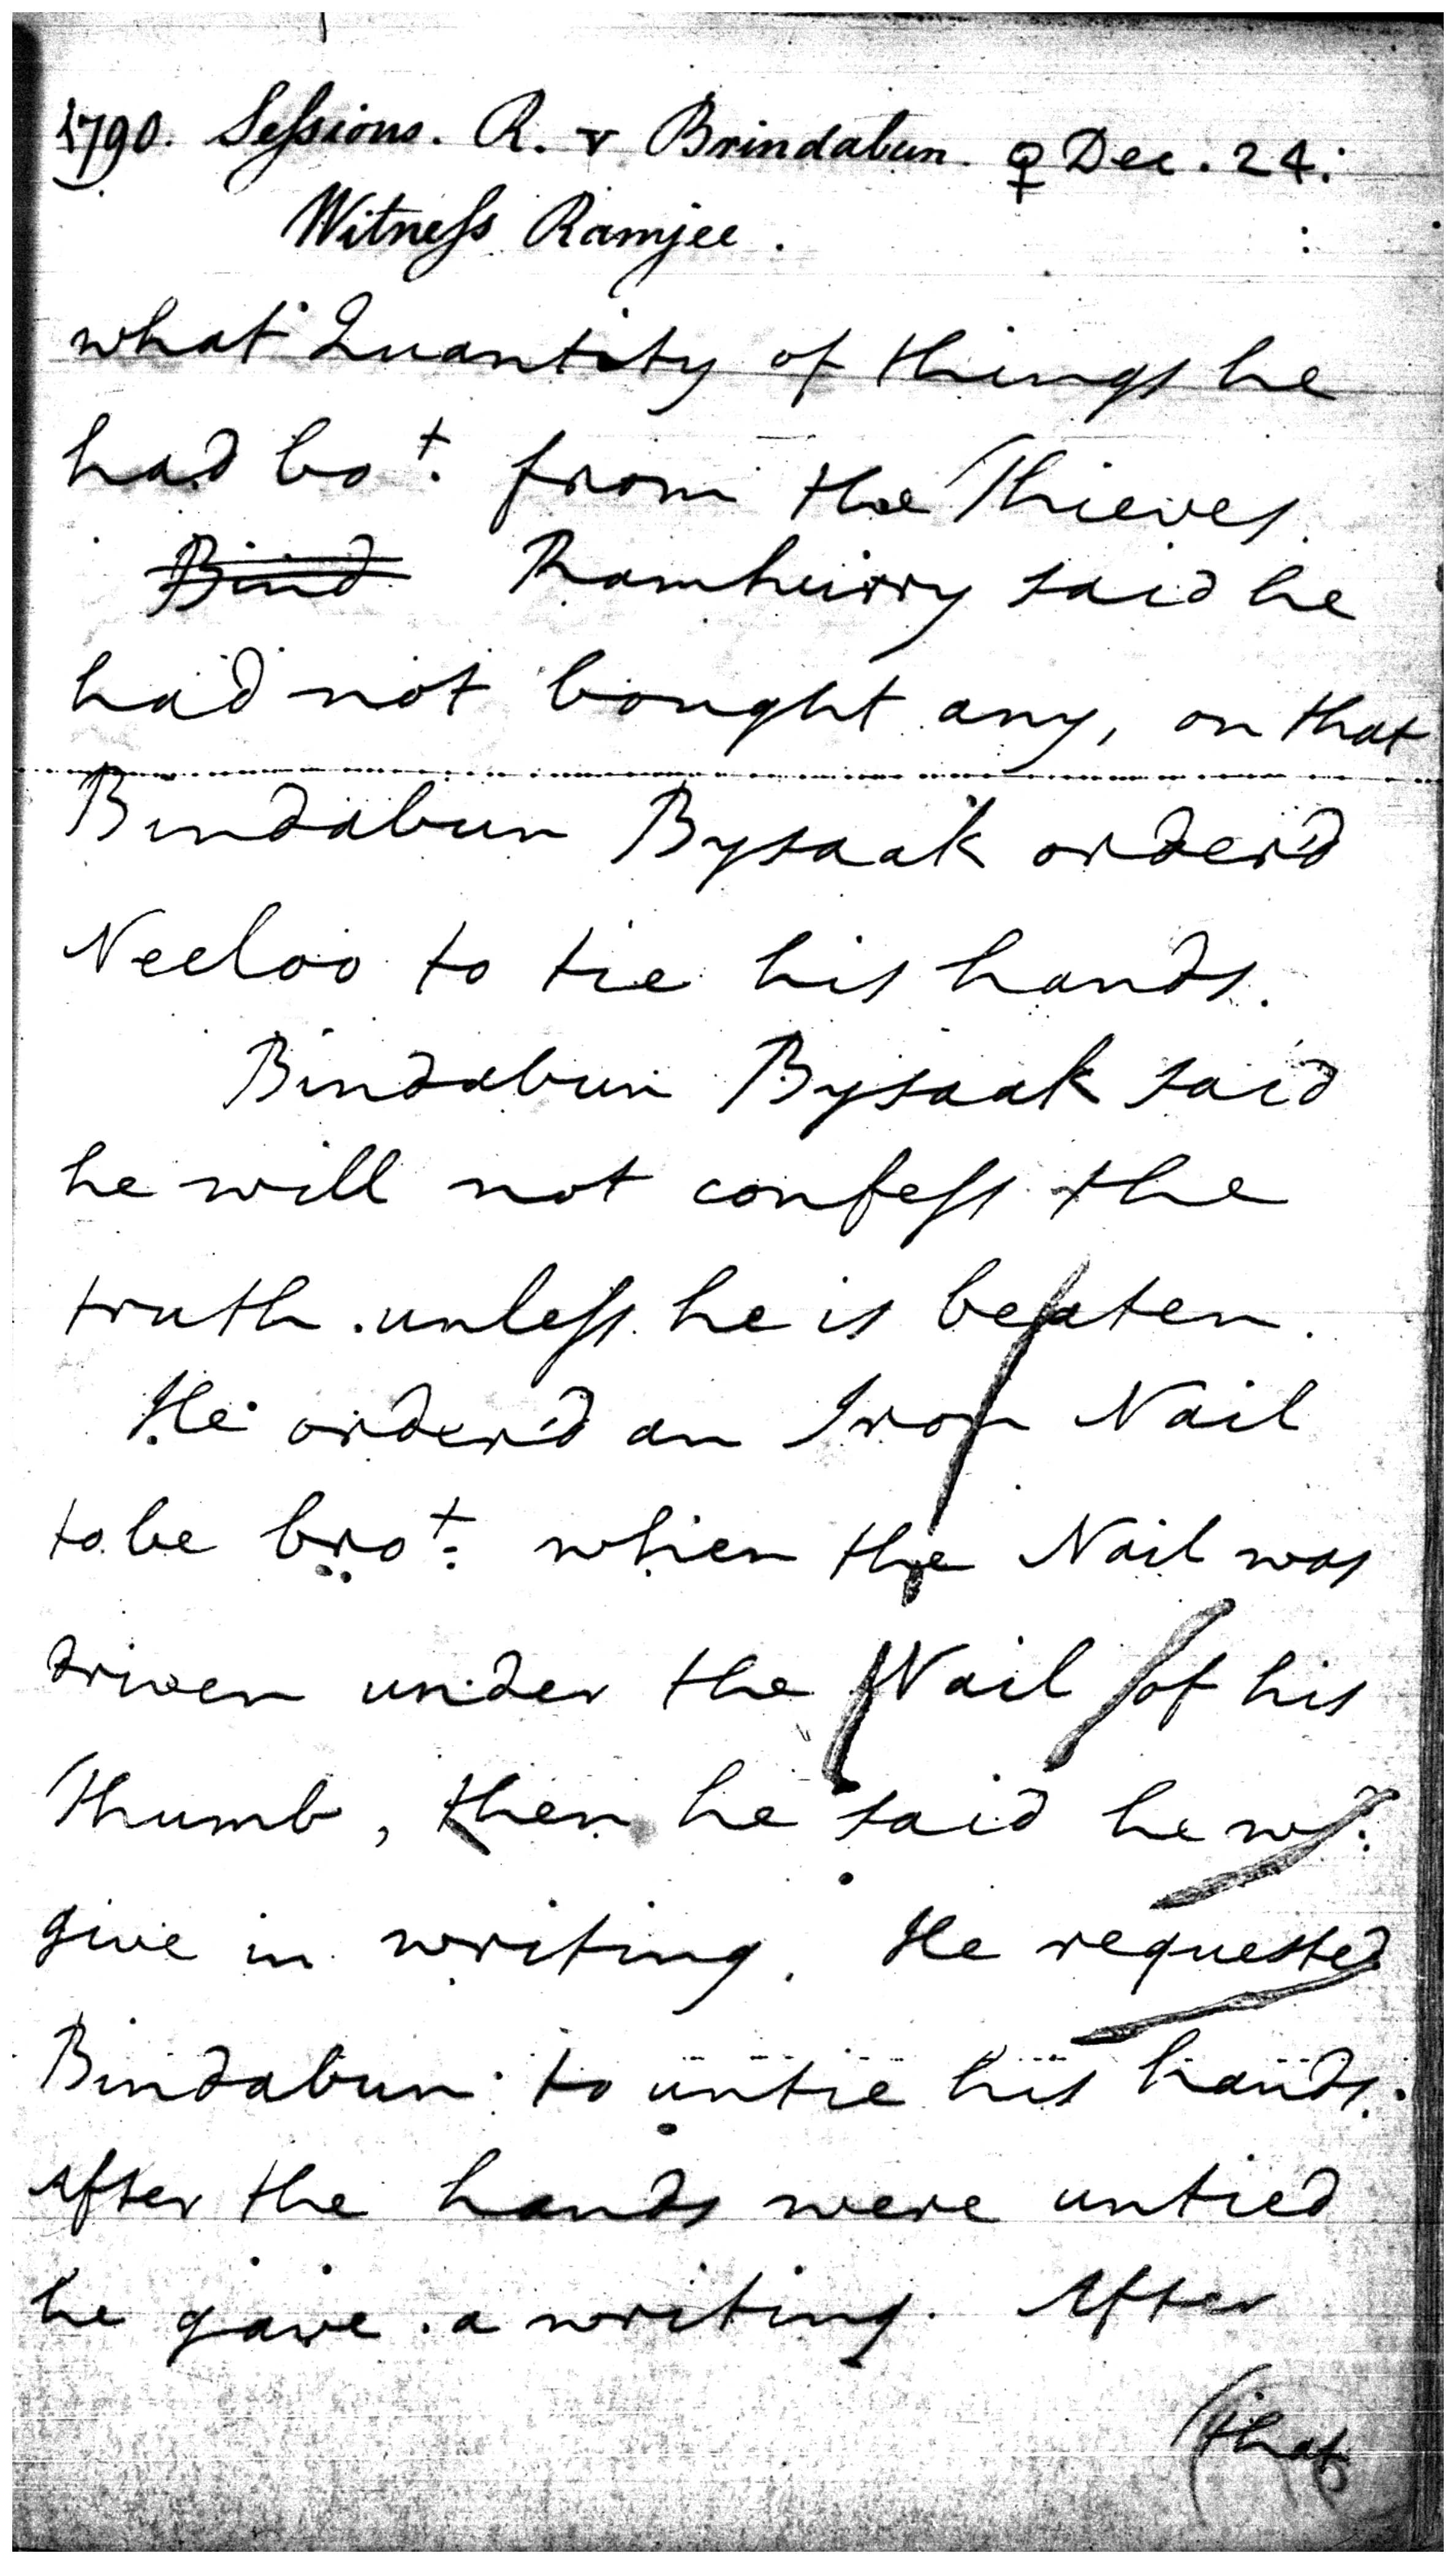 1790. Sessions. R. v Brindabun. ♀ Dec. 24.
Witness Ramjee.
what Quantity of things he
had bo.t from the Thieves.
Bind Ramhurry said he
had not bought any, on that
Bindabun Bysaak order'd
Neeloo to tie his hands.
Bindabun Bysaak said
he will not confess the
truth unless he is beaten.
He order'd an Iron Nail
to be bro.t when the Nail was
driven under the Nail of his
Thumb, then he said he wd.
give in writing. He requested
Bindabun to untie his hands.
After the hands were untied
he gave a writing. After
that